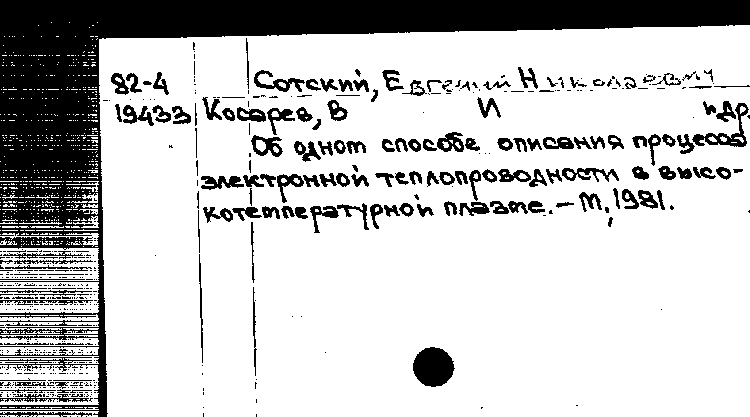 82-4 Сотский, Евгений Николаевич
19433 Косарев, В И и др.
Об одном способе описания процесов
электронной теплопроводности в высо-
котемпературной плазме. – М., 1981.